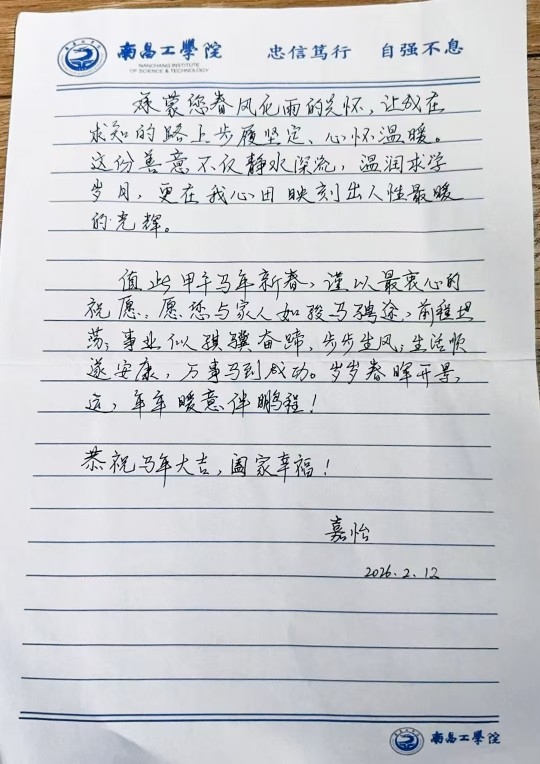 南昌工學院 忠信篤行 自强不息
NANCHANG INSTITUTE
OF SCIENCE & TECHNOLOGY
承蒙您春风化雨的关怀，让我在
求知的路上步履坚定、心怀温暖。
这份善意不仅静水深流，温润求学
岁月，更在我心田映刻出人性最暖
的光辉。
值此甲午马年新春，谨以最衷心的
祝愿：愿您与家人如骏马骋途，前程坦
荡；事业似骐骥奋蹄，步步生风；生活顺
遂安康，万事马到成功。岁岁春晖开景
运，年年暖意伴鹏程！
恭祝马年大吉，阖家幸福！
嘉怡
2026.2.12
南昌工學院